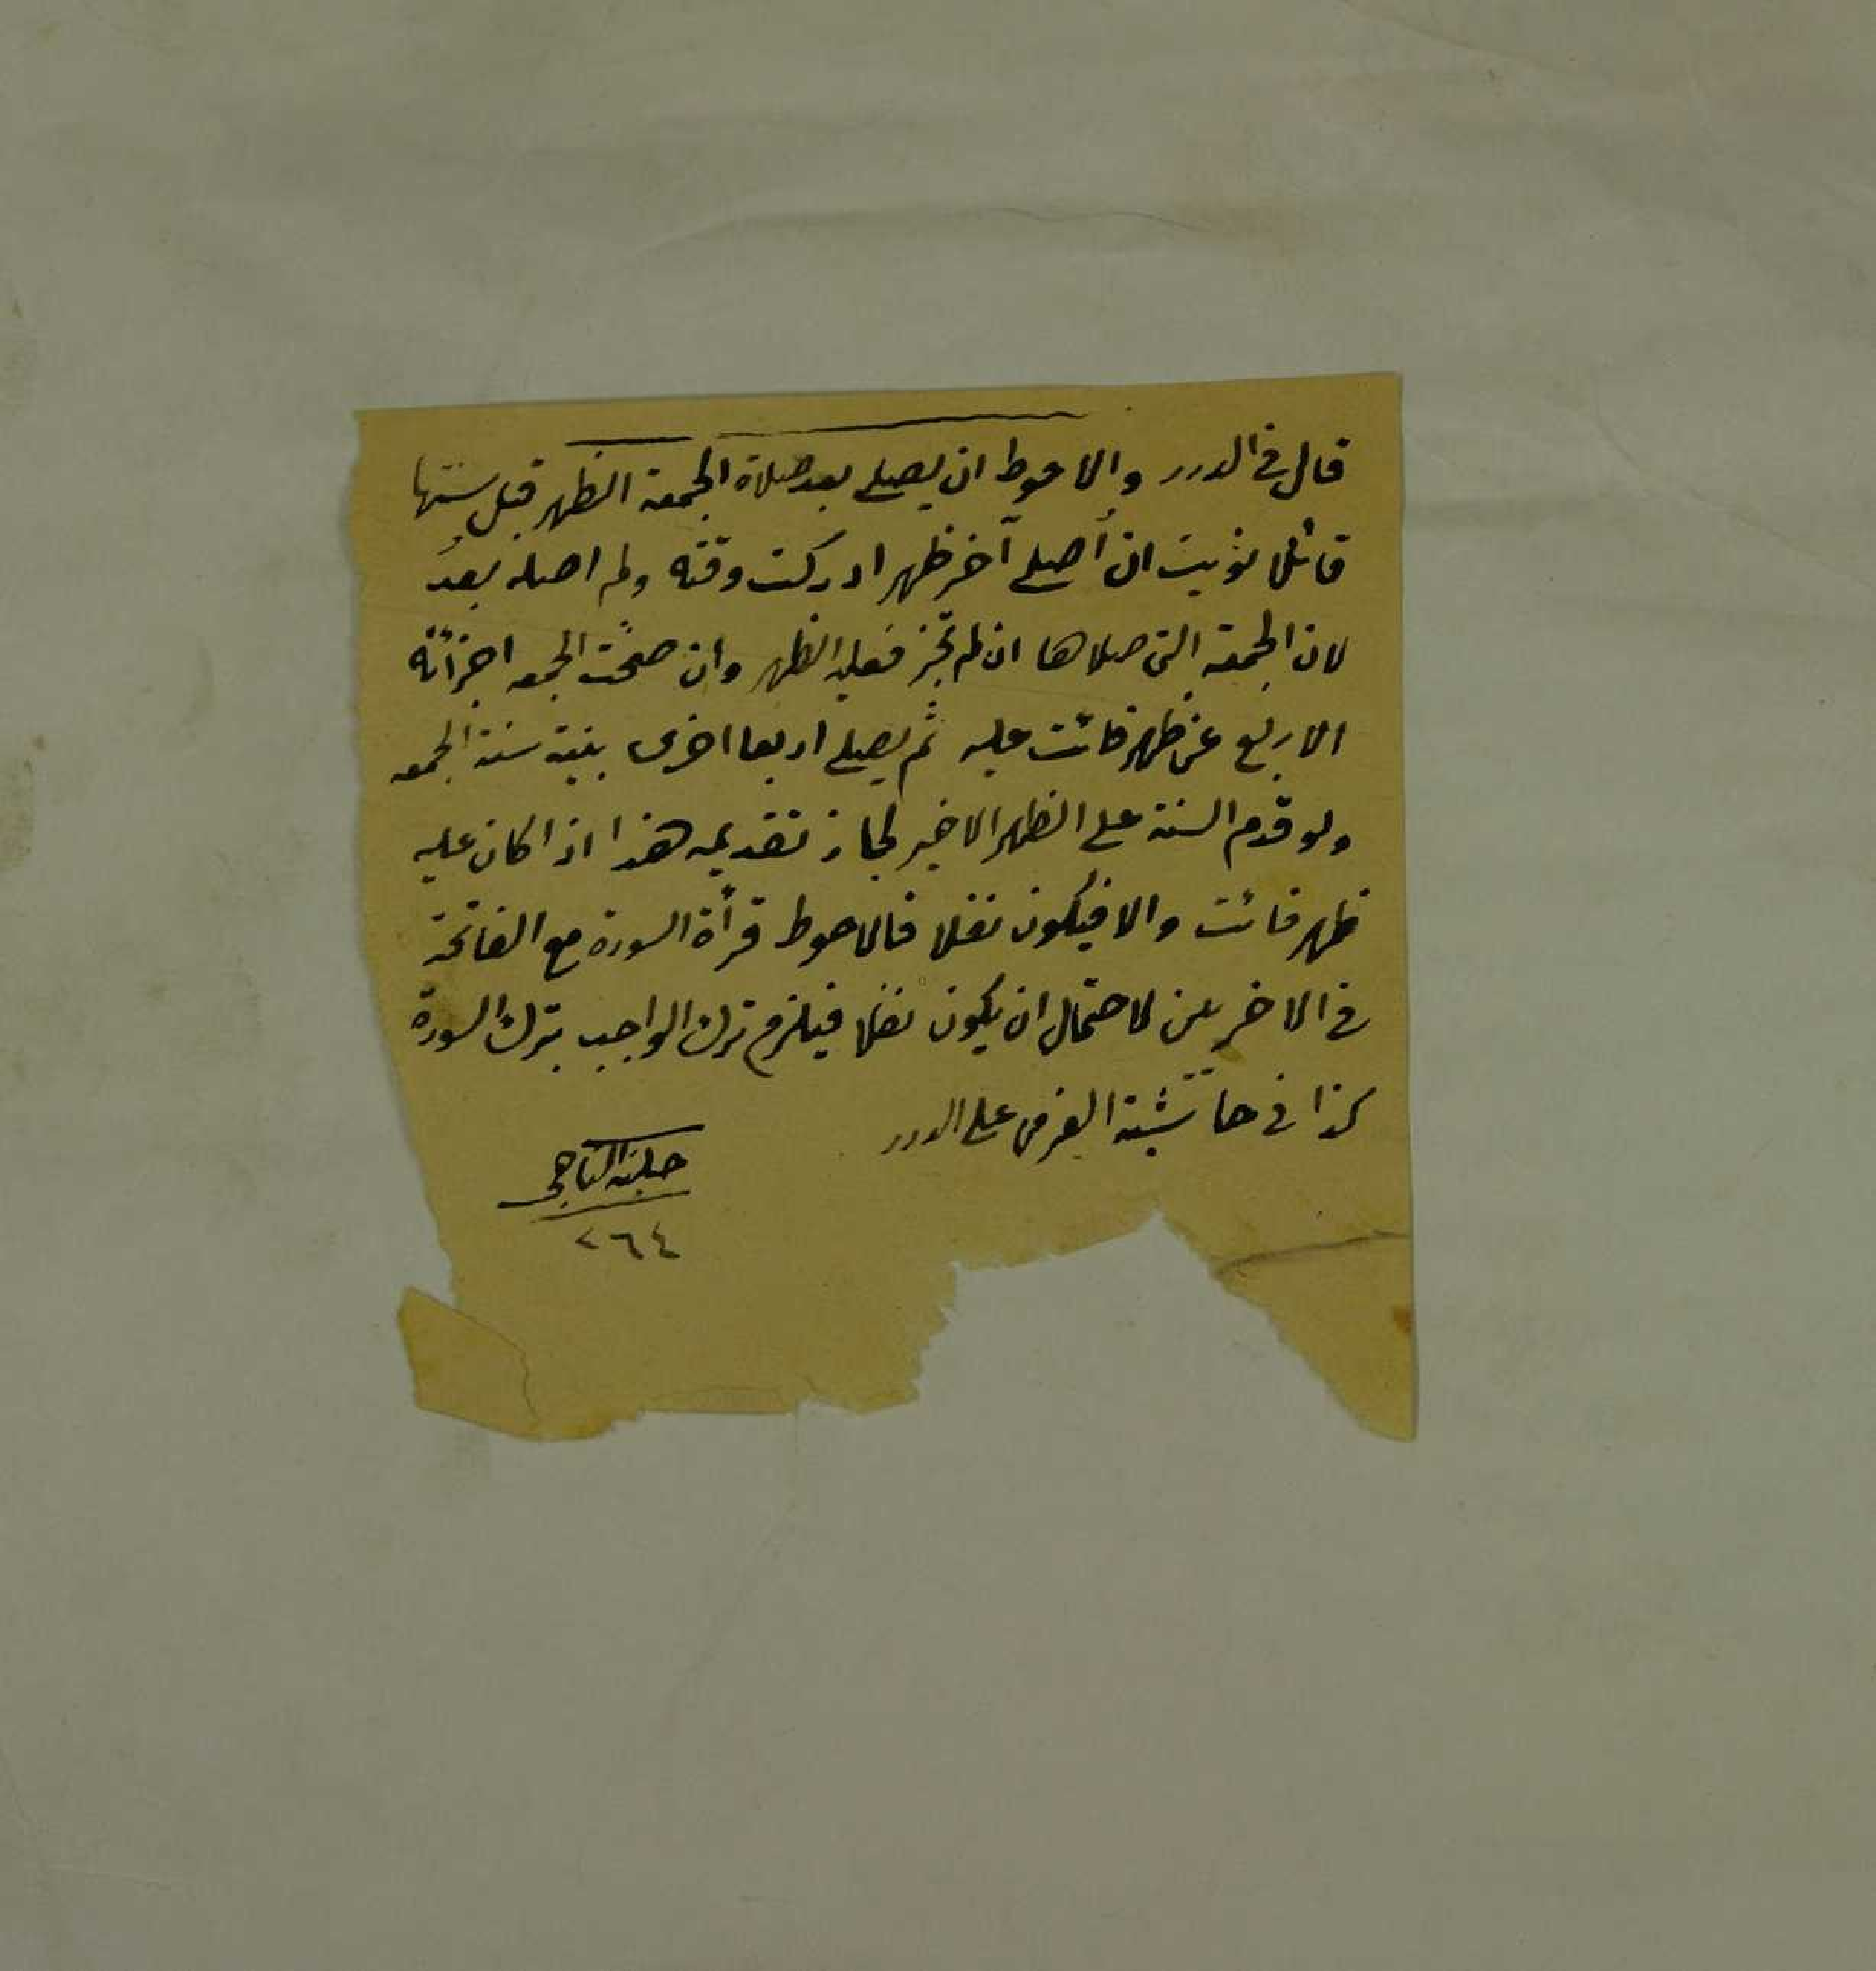 قال فى الدرر والاحوط ان يصلى بعد صلاة الجمعة الظهر قبل سنتها
قائلا نويت ان أصلى آخر ظهر ادركت وقته ولم اصله بعدُ
لان الجمعة التى صلاها ان لم تجز فعليه الظهر وان صحّت الجمعه اجزأته
الاربع عن ظهر فائت عليه ثم يصلى اربعا اخرى بنية سنة الجمعه
ولو قدم السنة على الظهر الاخير لجاز تقديمه هذا اذا كان عليه
ظهر فائت والا فيكون نفلا فالاحوط قرأة السورة مع الفاتحة
فى الاخريين لاحتمال ان يكون نفلا فيلزم ترك الواجب بترك السورة
كذا فى حاشية العزمى على الدرر
حلية الناجى
٢٦٤